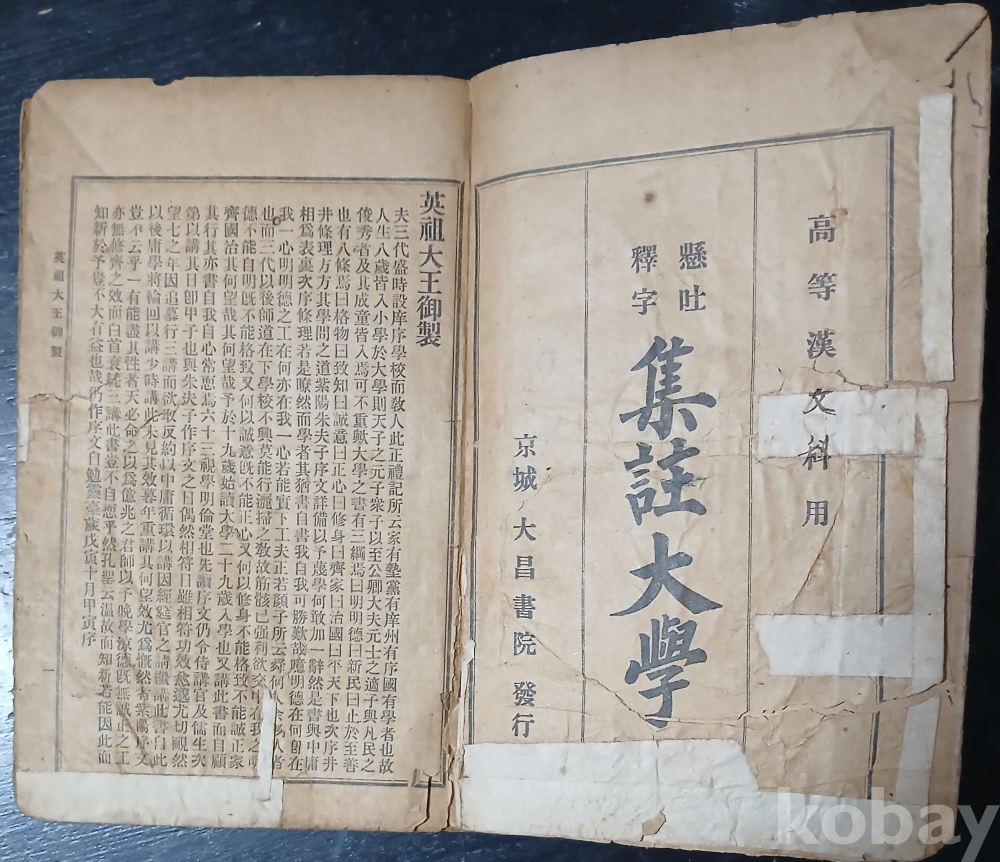 高等漢文科用
懸吐
釋字
集註大學
京城 大昌書院 發行
英祖大王御製
夫三代盛時設庠序學校而敎人此正禮記所云家有塾黨有庠州有序國有學者也故
人生八歲皆入小學於大學則天子之元子衆子以至公卿大夫元士之適子與凡民之
俊秀者及其成童皆入焉可不重歟大學之書有三綱焉曰明明德曰新民曰止於至善
也有八條焉曰格物曰致知曰誠意曰正心曰修身曰齊家曰治國曰平天下也次序井
井條理方方其學問之道紫陽朱夫子序文詳備以予蔑學何敢加一辭然是書與中庸
相爲表裏次序條理若是瞭然而學者其猶書自書我自我可勝歎哉噫明德在何卽在
我一心明明德之工在何亦在我一心若能實下工夫正若顔子所云舜何人余何人者
也而三代以後師道在下學校不興莫能行灑掃之敎故筋骸已强利欲交中在我之明
德不能自明旣不能格致又何以誠意旣不能正心又何以修身不能格致不能誠正家
齊國治其何望哉其何望哉予於十九歲始讀大學二十九歲入學也又講此書而自顧
其行其亦書自我自心常恧焉六十三視學明倫堂也先讀序文仍令侍講官及儒生次
第以講其日卽甲子也與朱夫子作序文之日偶然相符日雖相符功效愈邈尤切靦然
望七之年因追慕行三講而欲取反約以中庸循環以講因經筵官之請繼講此書自此
以後庸學將輪回以講少時講此未見其效暮年重講其何望效尤爲慨然者紫陽序文
豈不云乎一有能盡其性者天必命之以爲億兆之君師以予晩學涼德旣無誠正之工
亦無修齊之效而白首衰耗三講此書豈不自恧乎然孔聖云溫故而知新若能因此而
知新於予豈不大有益也哉仍作序文自勉靈臺歲戊寅十月甲寅序
英祖大王御製
一
kobay